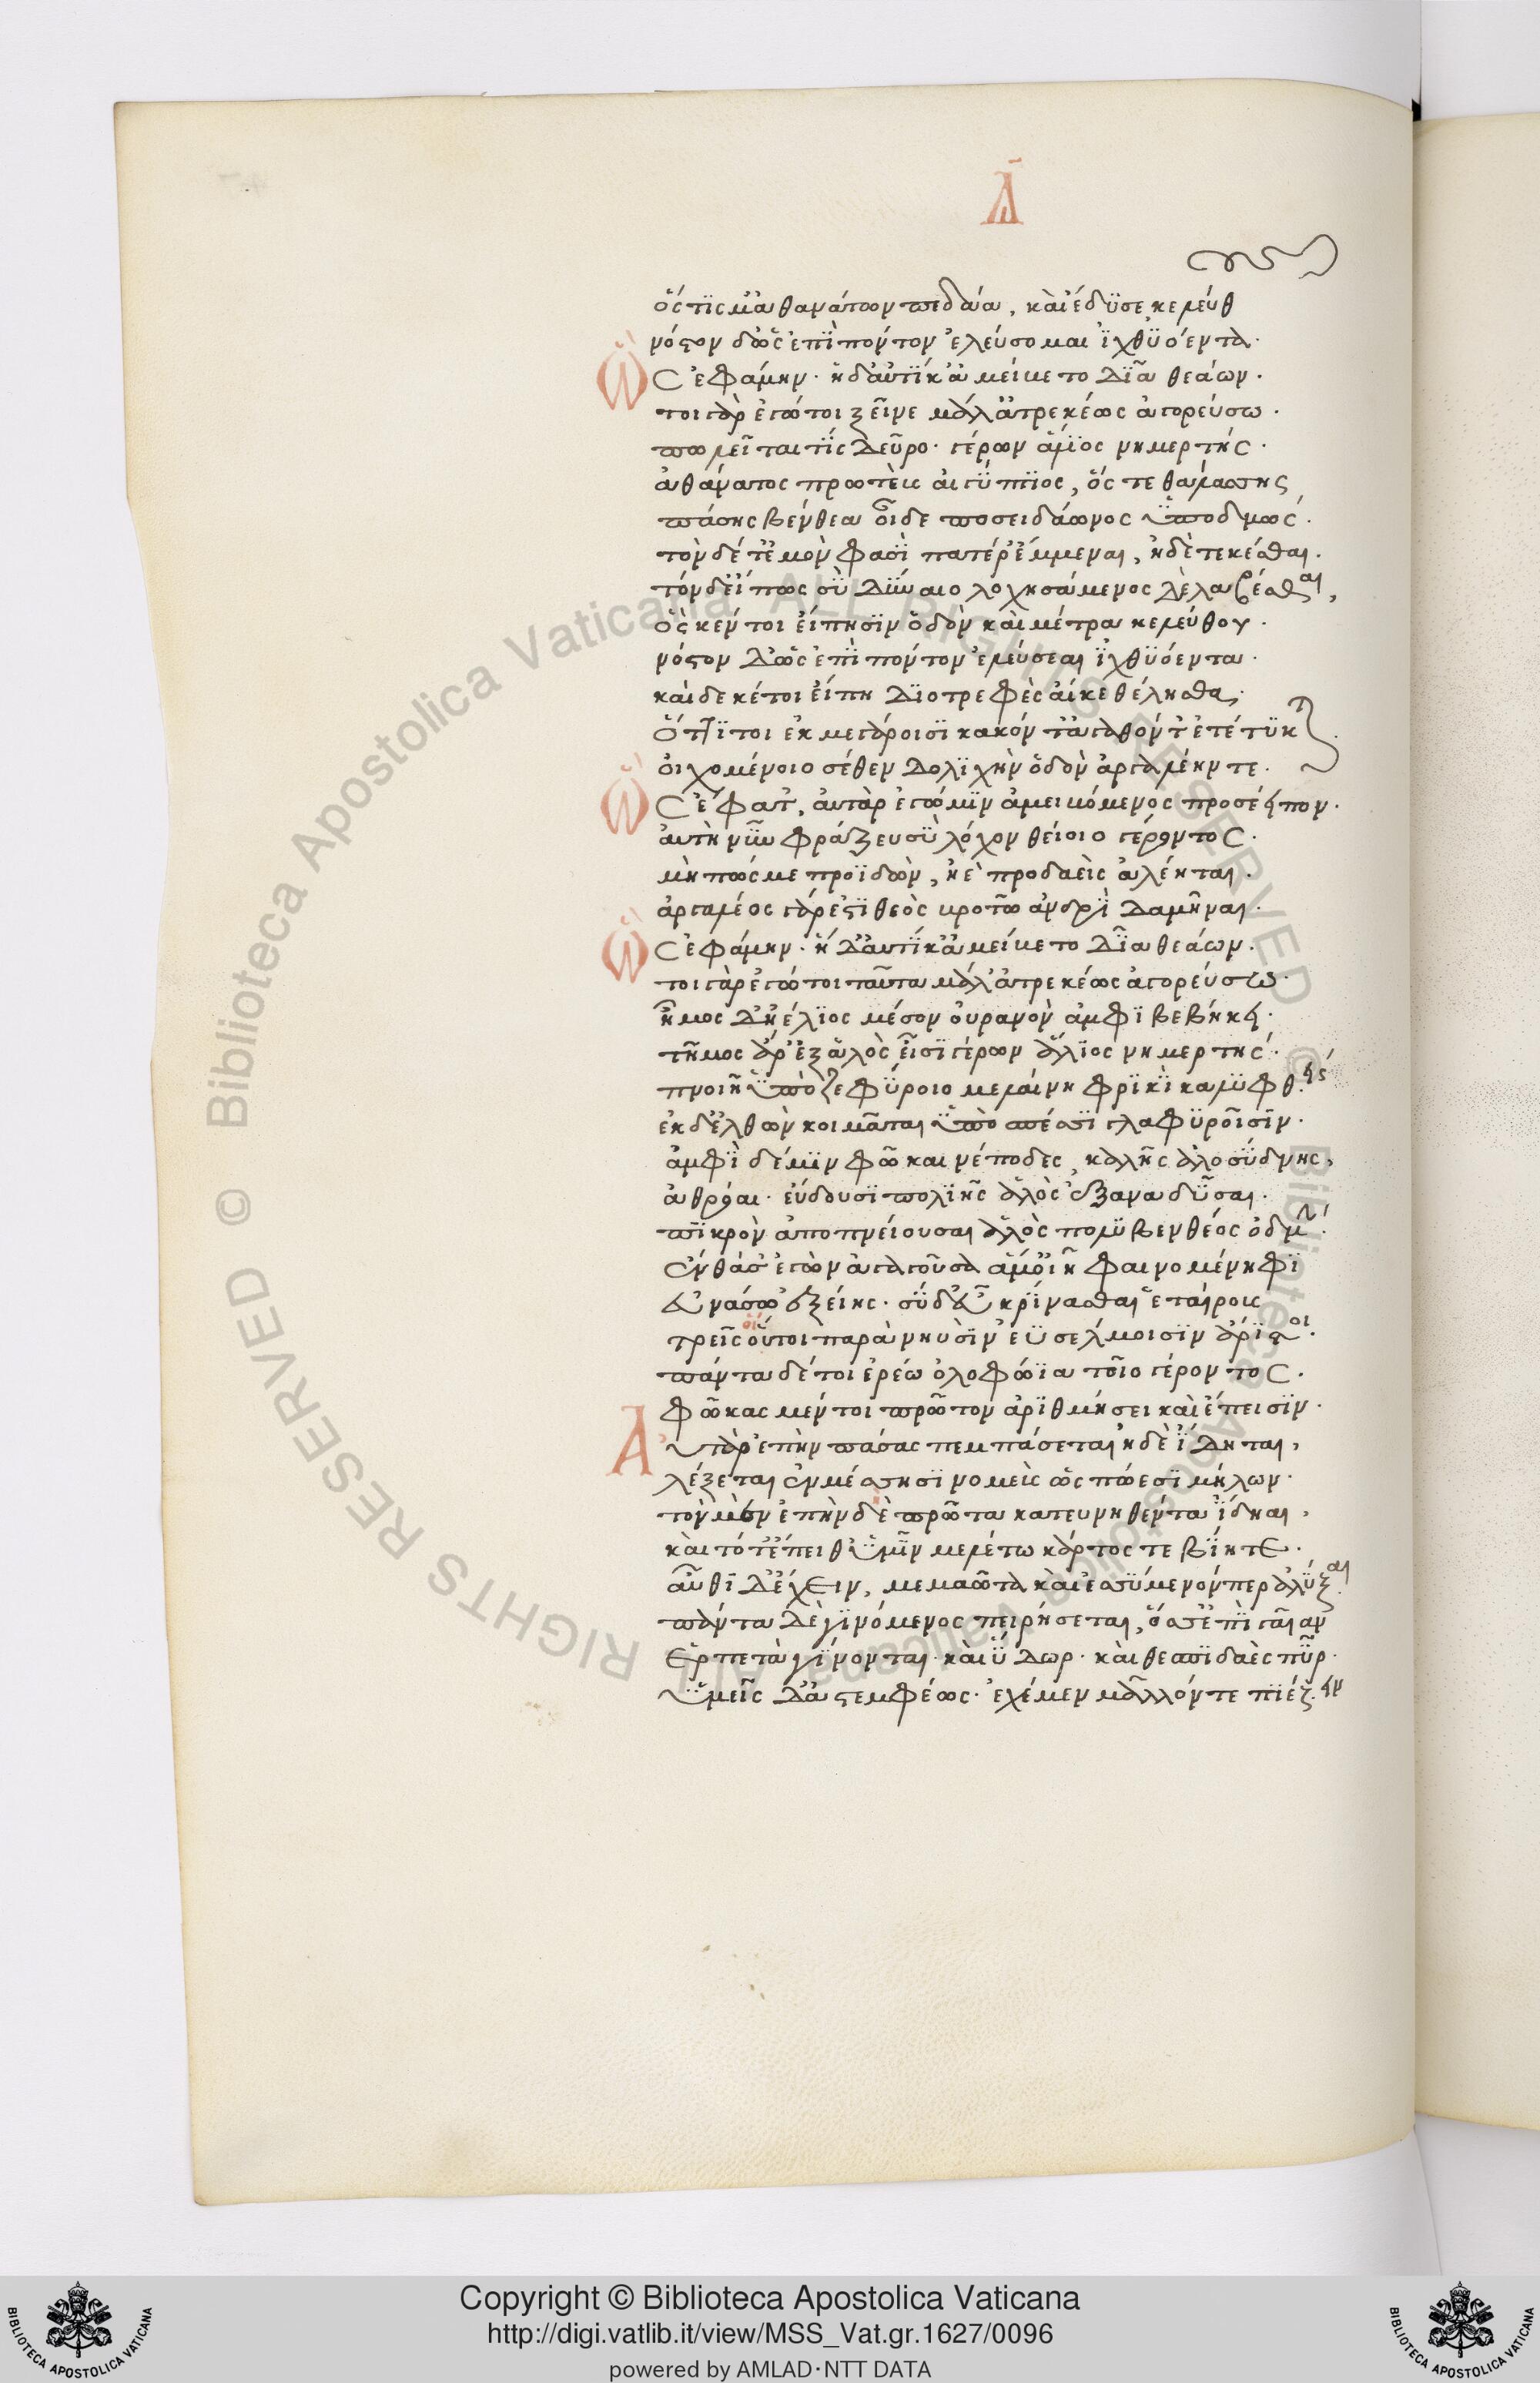 Δ
ὅς τίς μ' ἀθανάτων πεδάα, καὶ ἔδησε κελεύθ
νόστον θ' ὡς ἐπὶ πόντον ἐλεύσομαι ἰχθυόεντα·
Ὣς ἐφάμην· ἡ δ' αὐτίκ' ἀμείβετο δῖα θεάων·
τοὶ γὰρ ἐγώ τοι ξεῖνε μάλ' ἀτρεκέως ἀγορεύσω·
πωλεῖταί τις δεῦρο· γέρων ἅλιος νημερτής·
ἀθάνατος πρωτεὺς αἰγύπτιος, ὅς τε θαλάσσης
πάσης βένθεα οἶδε ποσειδάωνος ὑποδμώς·
τὸν δέ τ' ἐμὸν φασὶ πατέρ' ἔμμεναι, ἠδὲ τεκέσθαι·
τόν δ' εἴ πως σὺ δύναιο λοχησάμενος λελαβέσθαι,
ὅς κέν τοι εἴπησιν ὁδὸν καὶ μέτρα κελεύθου·
νόστον δ' ὡς ἐπὶ πόντον ἐλεύσεαι ἰχθυόεντα·
καὶ δέ κέ τοι εἴπη διοτρεφὲς αἴ κε θέλησθα,
ὅττί τοι ἐν μεγάροισι κακόν τ' ἀγαθόν τ' ἐτέτυκ
οἰχομένοιο σέθεν δολιχὴν ὁδὸν ἀργαλέην τε·
Ὣς ἔφατ', αὐτὰρ ἐγώ μιν ἀμειβόμενος προσέειπον·
αὐτὴ νῦν φράζευ σὺ λόχον θείοιο γέροντος·
μή πώς με προϊδὼν, ἠὲ προδαεὶς ἀλέηται·
ἀργαλέος γάρ ἐστι θεὸς βροτῷ ἀνδρὶ δαμῆναι·
Ὣς ἐφάμην· ἡ δ' αὐτίκ' ἀμείβετο δῖα θεάων·
τοὶ γὰρ ἐγώ τοι ταῦτα μάλ' ἀτρεκέως ἀγορεύσω·
ἦμος δ' ἠέλιος μέσον οὐρανὸν ἀμφιβεβήκει·
τῆμος ἄρ' ἐξ ἁλὸς εἶσι γέρων ἅλιος νημερτής·
πνοιῇ ὕπο ζεφύροιο μελαίνη φρικὶ καλυφθείς
ἐκ δ' ἐλθὼν κοιμᾶται ὑπὸ σπέσσι γλαφυροῖσιν·
ἀμφὶ δέ μιν φῶκαι νέποδες, καλῆς ἁλοσύδνης,
ἀθρόαι· εὕδουσι πολιῆς ἁλὸς ἐξαναδῦσαι·
πικρὸν ἀποπνείουσαι ἁλὸς πολυβενθέος ὀδμ·
ἔνθά σ' ἐγὼν ἀγαγοῦσα ἅμ' ἠοῖ φαινομένηφι
εὐνάσω ἑξείης· σὺ δ' εὖ κρίνασθαι ἑταίρους
τρεῖς οἵ τοι παρὰ νηυσὶν ἐϋσέλμοισιν ἄριστοι·
πάντα δέ τοι ἐρέω ὀλοφώϊα τοῖο γέροντος·
φώκας μέν τοι πρῶτον ἀριθμήσει καὶ ἔπεισιν·
Αὐτὰρ ἐπὴν πάσας πεμπάσεται ἠδὲ ἴδηται,
λέξεται ἐν μέσσησι νομεὺς ὣς πώεσι μήλων·
τὸν μὲν ἐπὴν δὲ πρῶτα κατευνηθέντα ἴδηαι,
καὶ τότ' ἔπειθ' ὑμῖν μελέτω κάρτος τε βίη τε·
αὖθι δ' ἔχειν, μεμαῶτα καὶ ἐσσύμενόν περ ἀλύξαι
πάντα δὲ γινόμενος πειρήσεται, ὅσσ' ἐπὶ γαῖαν
ἑρπετὰ γίνονται· καὶ ὕδωρ· καὶ θεσπιδαὲς πῦρ·
ὑμεῖς δ' ἀστεμφέως· ἐχέμεν μᾶλλόν τε πιέζειν
Copyright © Biblioteca Apostolica Vaticana
http://digi.vatlib.it/view/MSS_Vat.gr.1627/0096
powered by AMLAD·NTT DATA